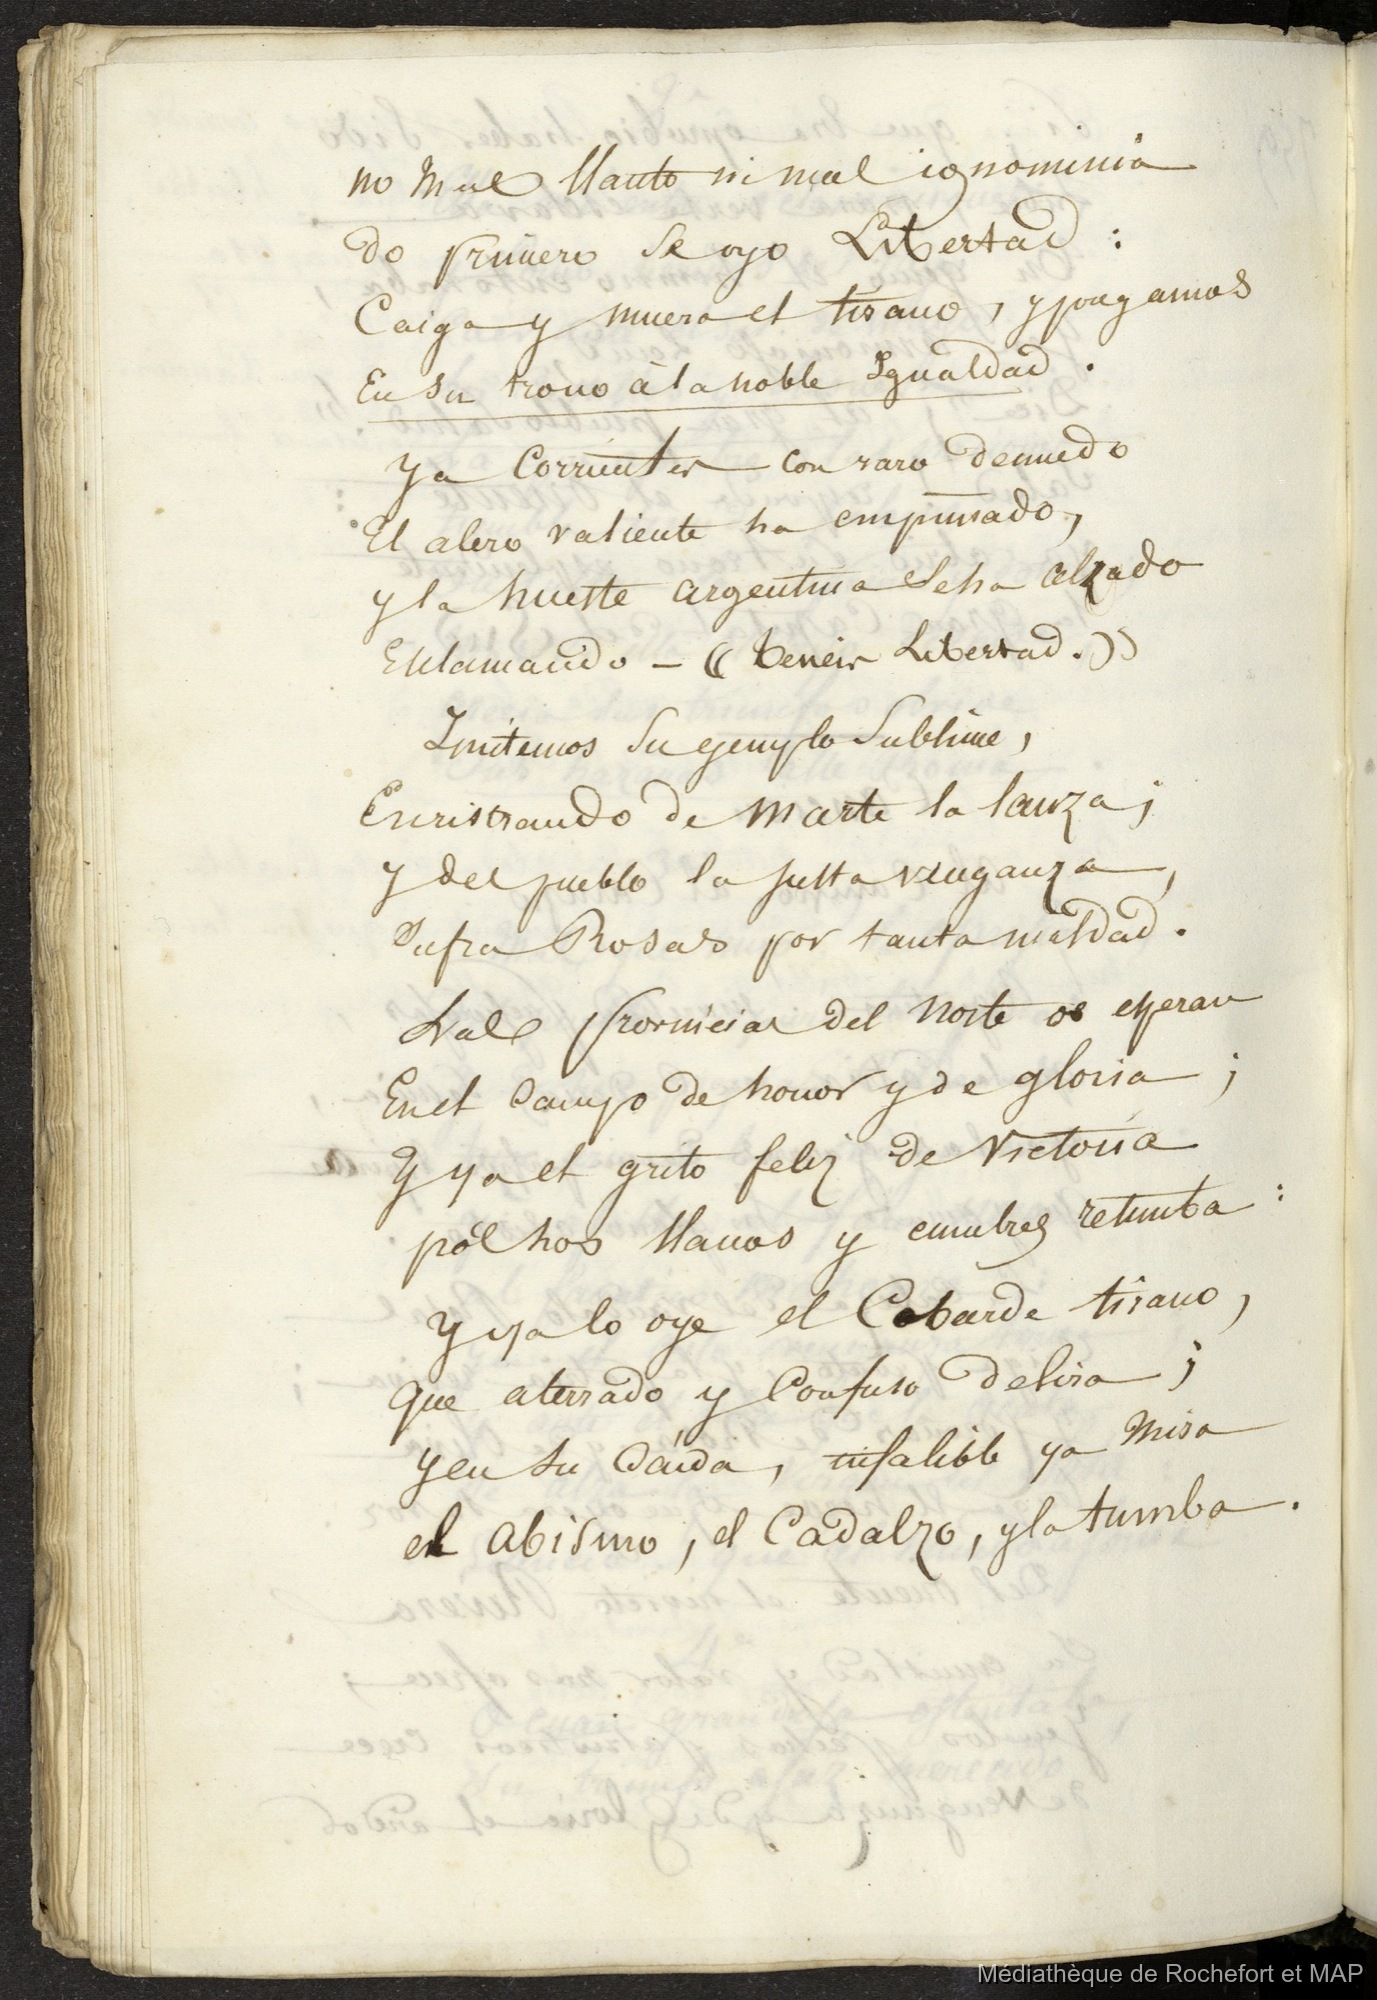 no mas llanto ni mas ignominia
do primero se oyo Libertad :
Caiga y muera el tirano, y pongamos
En su trono à la noble Igualdad .
Ya Corrientes con raro denuedo
El alero valiente ha empuñado,
y la hueste argentina se ha alzado
Esclamando – (( Libertad. ))
Imitemos su ejemplo sublime,
Enristrando de marte la lanza ;
y del pueblo la justa venganza,
Sufra Rosas por tanta maldad .
Las provincias del norte os esperan
En el Campo de honor y de gloria ;
Y ya el grito feliz de victoria
llanos y cumbres retumba :
Y ya lo oye el Cobarde tirano,
que aterrado y Confuso delira ;
y en su Caída, infalible ya mira
el abismo, el Cadalzo, y la tumba .
Médiathèque de Rochefort et MAP